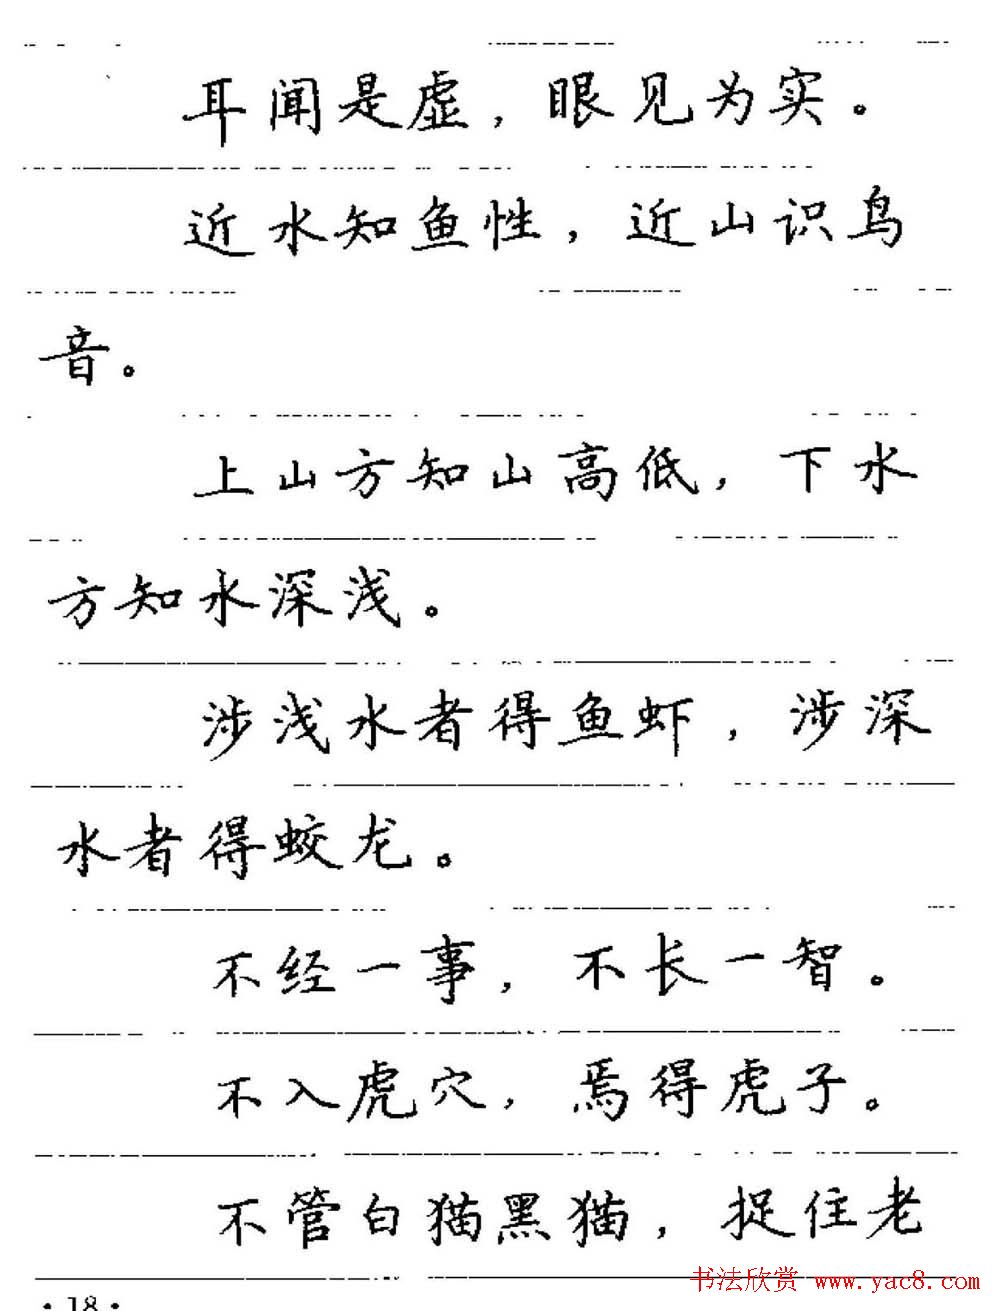 耳闻是虚，眼见为实。
近水知鱼性，近山识鸟
音。
上山方知山高低，下水
方知水深浅。
涉浅水者得鱼虾，涉深
水者得蛟龙。
不经一事，不长一智。
不入虎穴，焉得虎子。
不管白猫黑猫，捉住老
书法欣赏 www.yac8.com
·18·